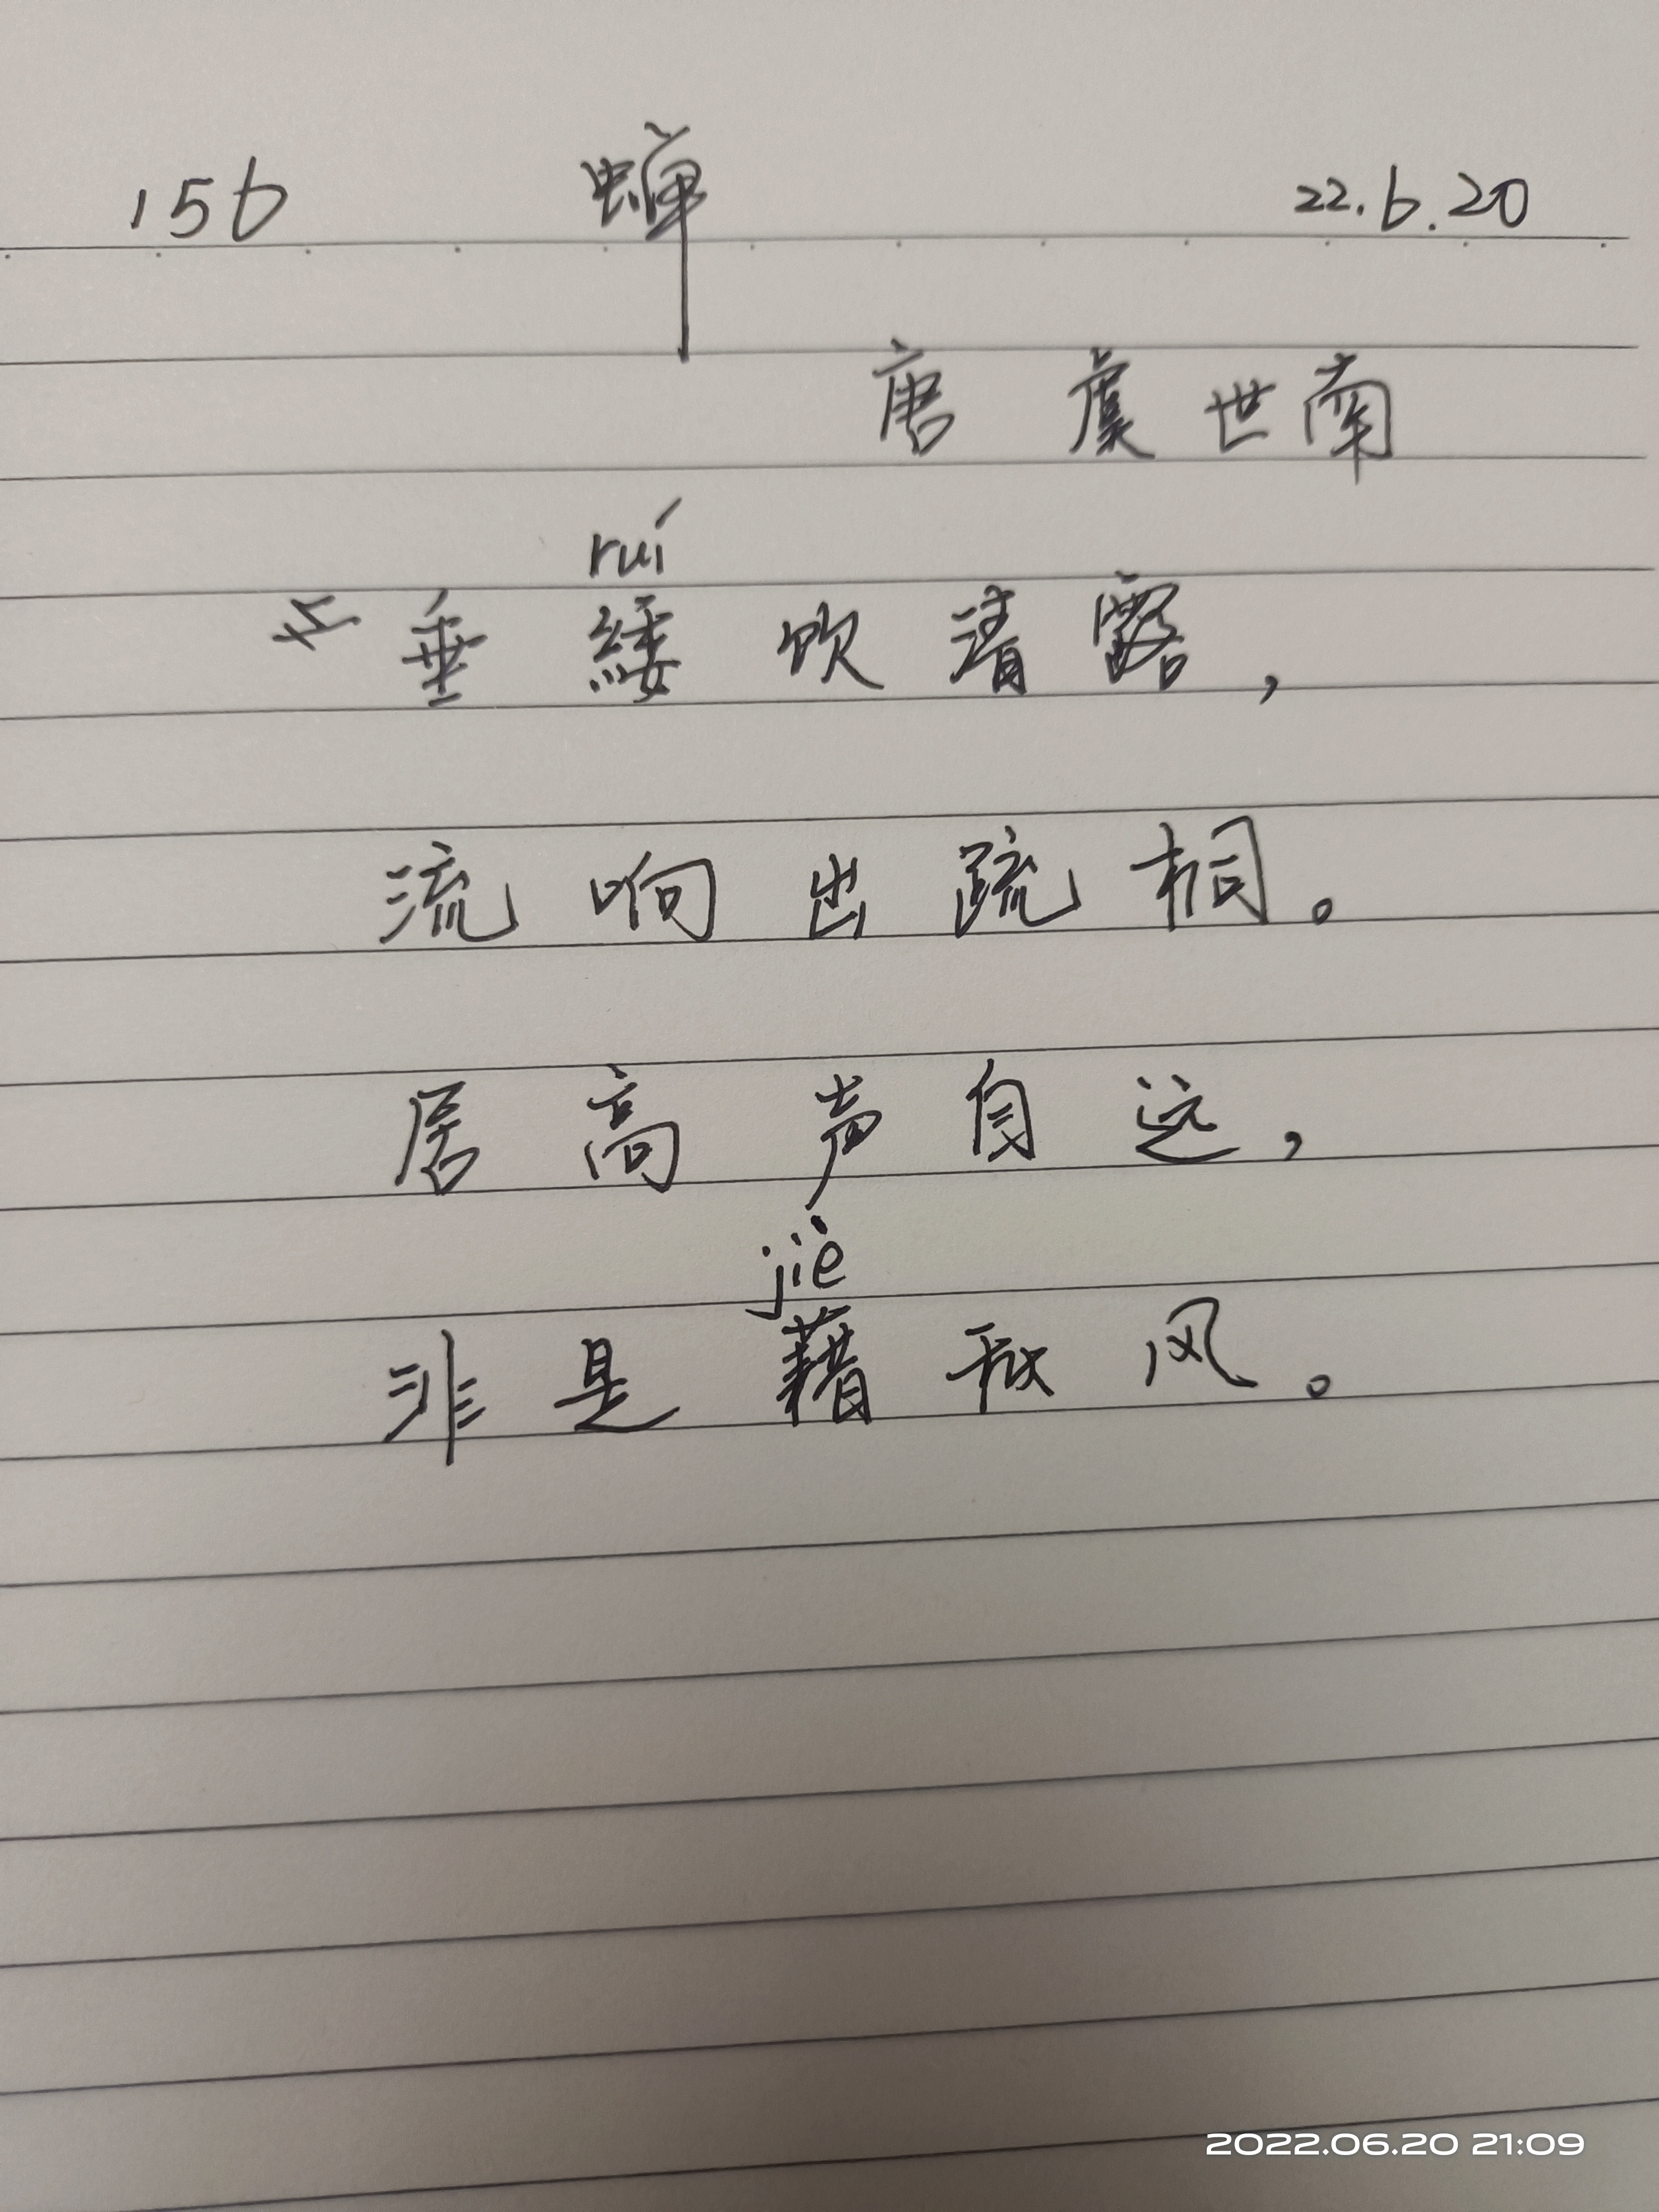 156 蝉 22.6.20
唐 虞世南
ruí
垂緌饮清露，
流响出疏桐。
居高声自远，
jiè
非是藉秋风。
2022.06.20 21:09